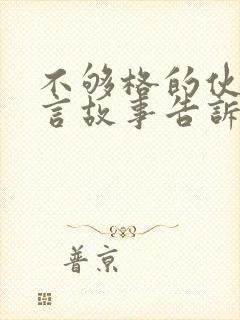 不够格的伙
言故事告訴
普京